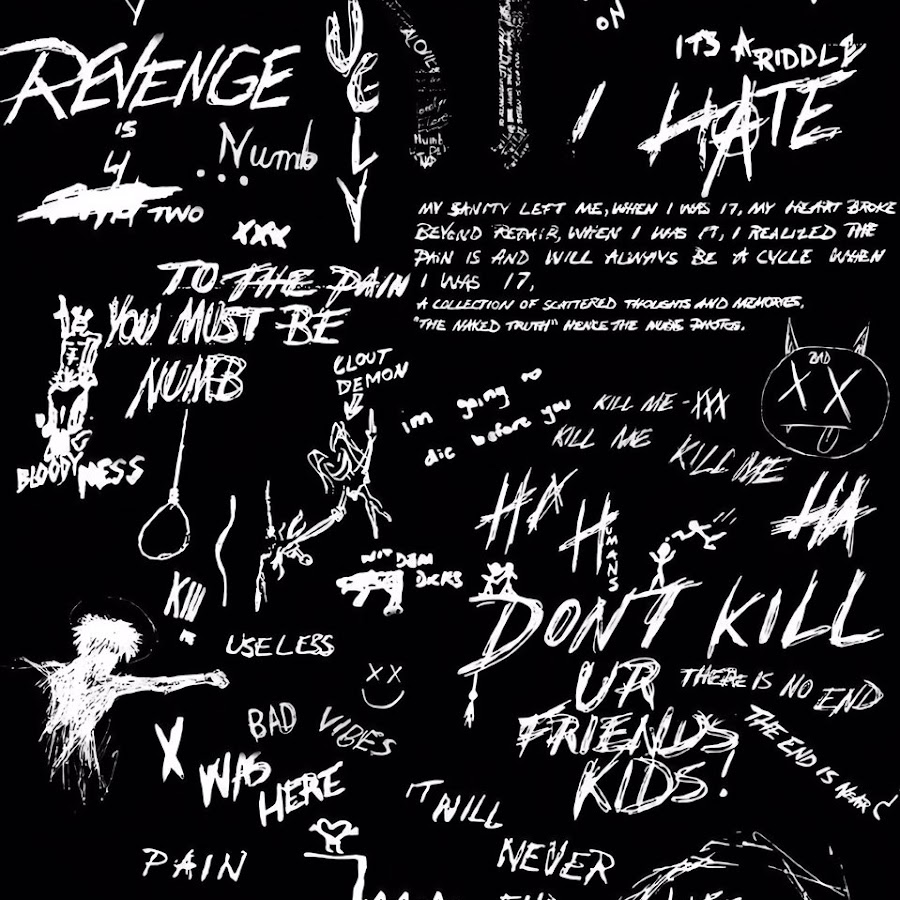 ON
ITS A
RIDDLE
REVENGE
IS
4
TWO
UGLY
Numb
...
I
HATE
XXX
MY SANITY LEFT ME, WHEN I WAS 17, MY HEART BROKE
BEYOND REPAIR, WHEN I WAS 17, I REALIZED THE
PAIN IS AND WILL ALWAYS BE A CYCLE WHEN
I WAS 17,
A COLLECTION OF SCATTERED THOUGHTS AND MEMORIES.
"THE NAKED TRUTH" HENCE THE NUDE PHOTOS.
TO THE PAIN
YOU MUST BE
NUMB
BLOODY NESS
CLOUT
DEMON
im going to
die before you
KILL ME - XXX
KILL ME
KILL ME
BAD
X X
HA
HUMANS
HA
DEM
DICKS
KILL
USELESS
DON'T KILL
UR
FRIENDS,
KIDS!
THERE IS NO END
THE END IS NEAR
X X
BAD VIBES
X
WAS
HERE
IT WILL
NEVER
END
PAIN